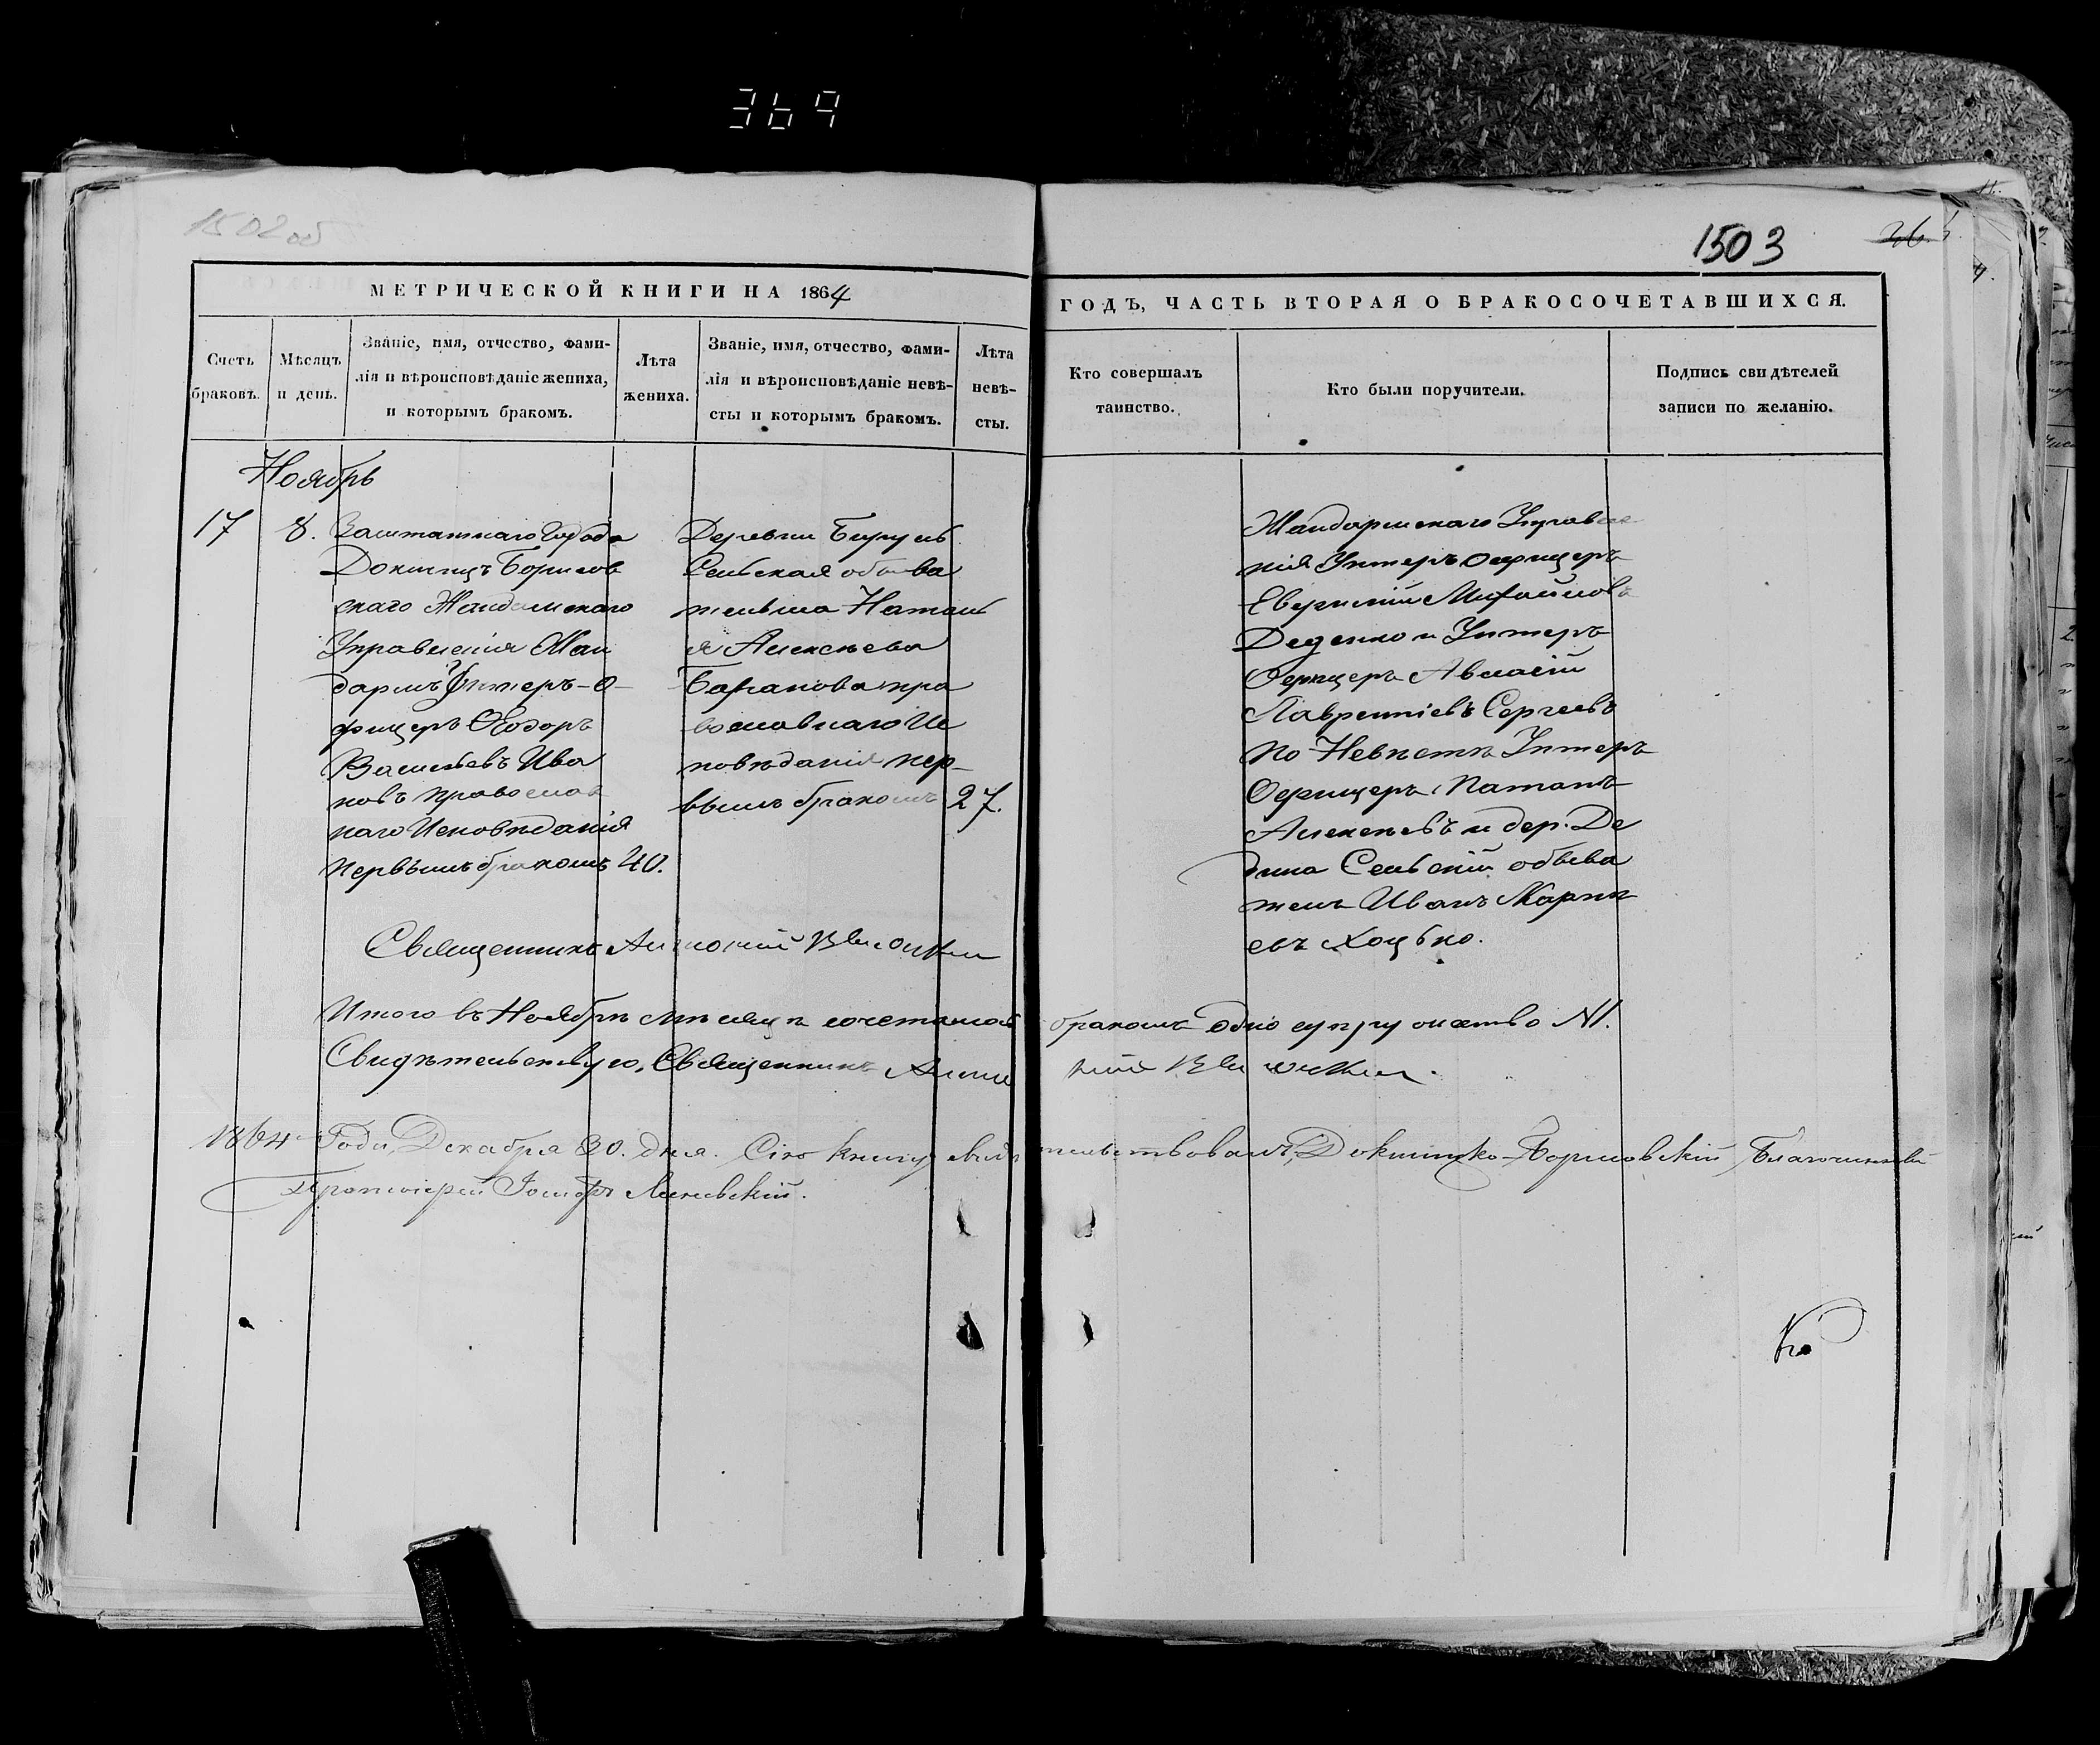 369
1502 об
1503
МЕТРИЧЕСКОЙ КНИГИ НА 1864
ГОДЪ, ЧАСТЬ ВТОРАЯ О БРАКОСОЧЕТАВШИХСЯ.
Счетъ
браковъ.
Мѣсяцъ
и день.
Званіе, имя, отчество, фами-
лія и вѣроисповѣданіе жениха,
и которымъ бракомъ.
Лѣта
жениха.
Званіе, имя, отчество, фами-
лія и вѣроисповѣданіе невѣ-
сты и которымъ бракомъ.
Лѣта
невѣ-
сты.
Кто совершалъ
таинство.
Кто были поручители.
Подпись свидѣтелей
записи по желанію.
Ноябрь
17
8.
Заштатнаго Города
Докшицъ Борисов
скаго
Управленія Жан
дармъ Унтеръ-О-
фицеръ Ѳеодоръ
Васильевъ Ива
новъ православ
наго Исповѣданія
первымъ бракомъ 40.
Деревни
Сельская обыва
тельша Натал
я Алексѣева
Баранова пра
вославнаго Ис
повѣданія пер-
вымъ бракомъ 27.
Жандармскаго Управле
нія Унтеръ офицеръ
Михайловъ
и Унтеръ
Офицеръ
Лаврентіевъ Сергеевъ
по Невѣстѣ Унтеръ
Офицеръ
Алексѣевъ и дер. Де
дина Сельскій обыва
тель Иванъ
евъ Хоцько.
Священникъ
Итого въ Ноябрѣ мѣсяцѣ сочеталось бракомъ одно супружество №1.
Свидѣтельствую, Священникъ
1864 Года Декабря 30. дня. Сію книгу свидѣтельствовалъ, Докшицко-Борисовскій Благочинный
Протоіерей Іосифъ